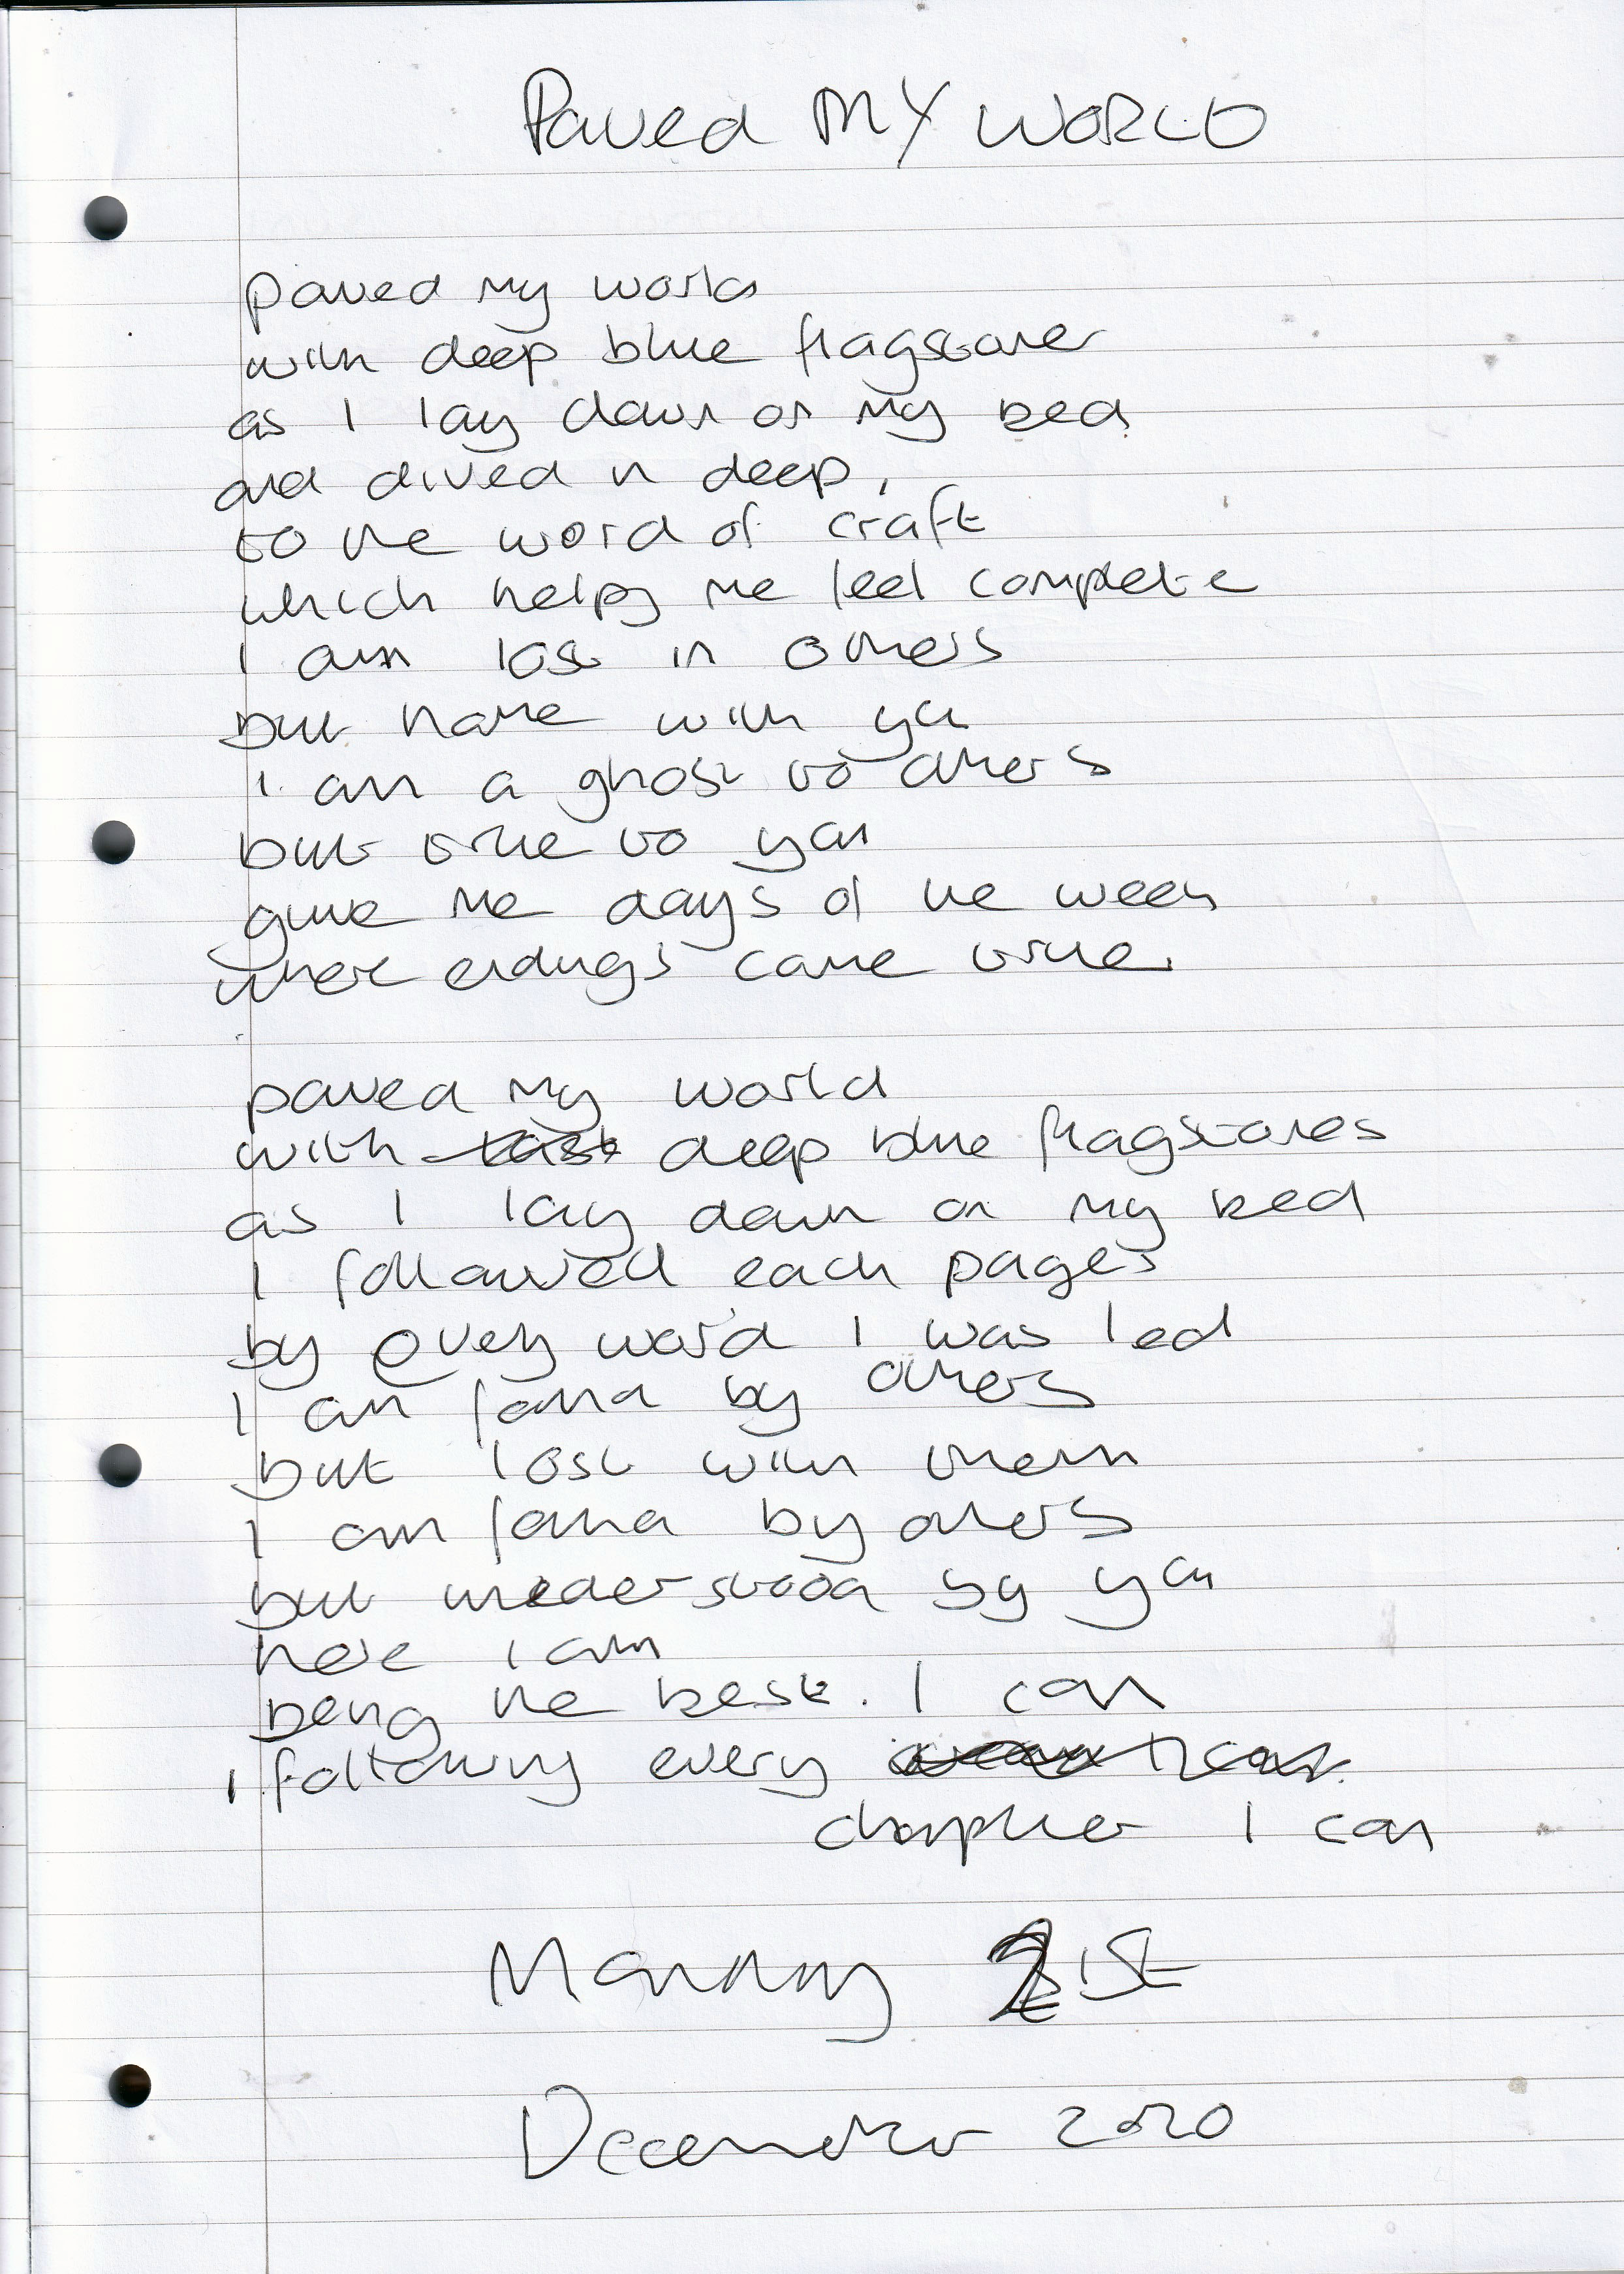 Paved MY WORLD
paved my world
with deep blue flagstones
as I lay down on my bed
and dived in deep,
to the word of craft
which helps me feel complete
I am lost in others
but home with you
I am a ghost to others
but true to you
give me days of the week
where endings come true.
paved my world
with deep blue flagstones
as I lay down on my bed
I followed each pages
by every word I was led
I am found by others
but lost with them
I am found by others
but understood by you
here I am
being the best. I can
following every
chapter I can
Monday 21st
December 2020